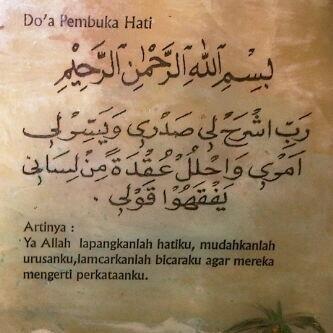 Do'a Pembuka Hati
بِسْمِ اللهِ الرَّحْمٰنِ الرَّحِيْمِ
رَبِّ اشْرَحْ لِي صَدْرِي وَيَسِّرْ لِي
اَمْرِي وَاحْلُلْ عُقْدَةً مِنْ لِسَانِي
يَفْقَهُوْا قَوْلِي .
Artinya :
Ya Allah lapangkanlah hatiku, mudahkanlah
urusanku,lamcarkanlah bicaraku agar mereka
mengerti perkataanku.